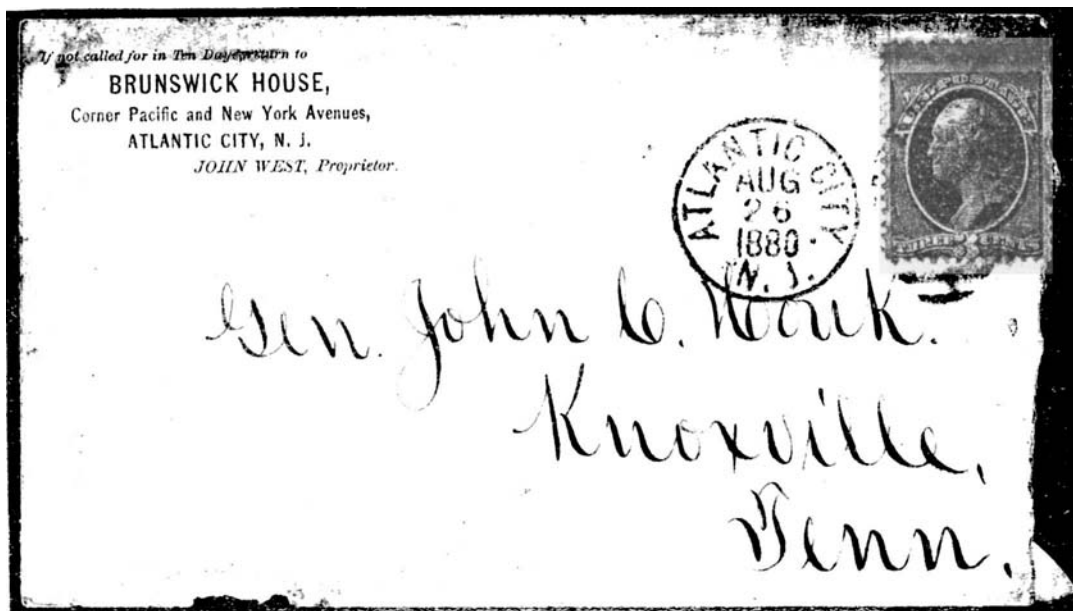 If not called for in Ten Days return to
BRUNSWICK HOUSE,
Corner Pacific and New York Avenues,
ATLANTIC CITY, N. J.
JOHN WEST, Proprietor.
ATLANTIC CITY
AUG
26
1880
N. J.
THREE 3 CENTS
Gen. John C. Houk.
Knoxville,
Tenn.